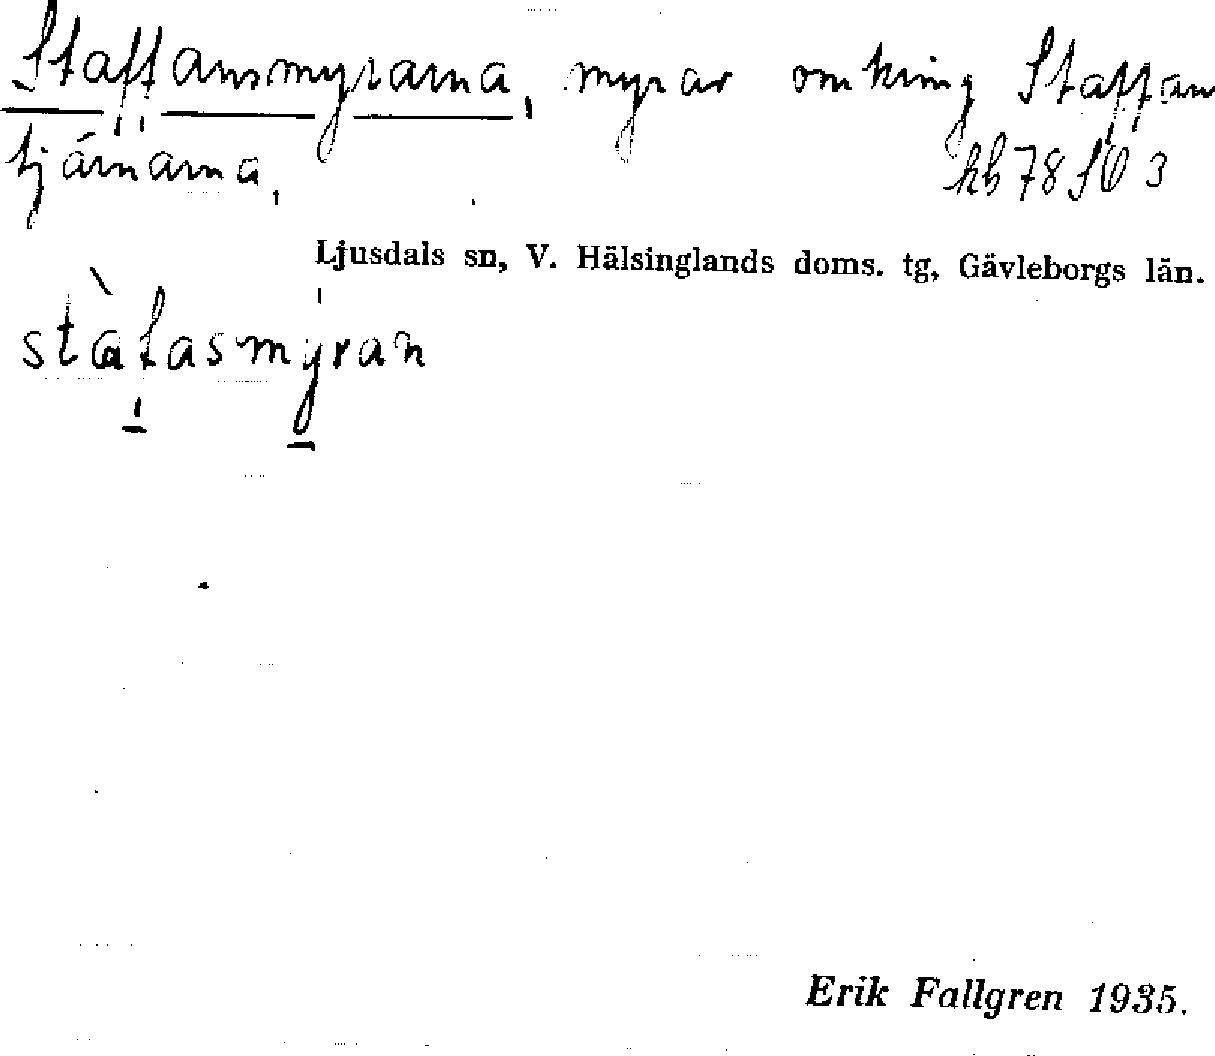 Staffansmyrarna, myrar omkring Staffans
tjärnarna.
kb 78 SV 3
Ljusdals sn, V. Hälsinglands doms. tg, Gävleborgs län.
stàfasmyran
Erik Fallgren 1935.